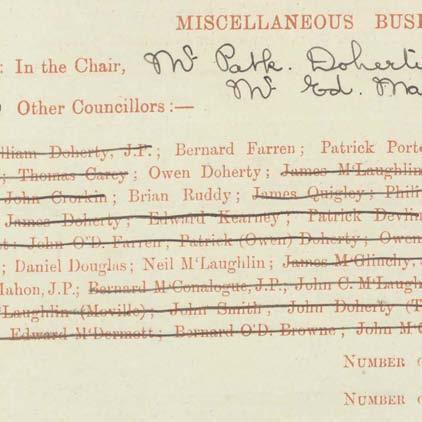 MISCELLANEOUS BUS
: In the Chair, Mr Patk. Doherty
Mr Ed. Ma
Other Councillors:—
lliam Doherty, J.P.; Bernard Farren; Patrick Porte
; Thomas Carey; Owen Doherty; James M'Laughlin
John Crorkin; Brian Ruddy; James Quigley; Phili
James Doherty; Edward Kearney; Patrick Devlin
t; John O'D. Farren; Patrick (Owen) Doherty; Owen
; Daniel Douglas; Neil M'Laughlin; James M'Glinchy,
Mahon, J.P.; Bernard McConalogue, J.P.; John C. M'Laugh
'Laughlin (Moville); John Smith, John Doherty (T
Edward M'Dermott; Bernard O'D. Browne; John M'C
NUMBER
NUMBER